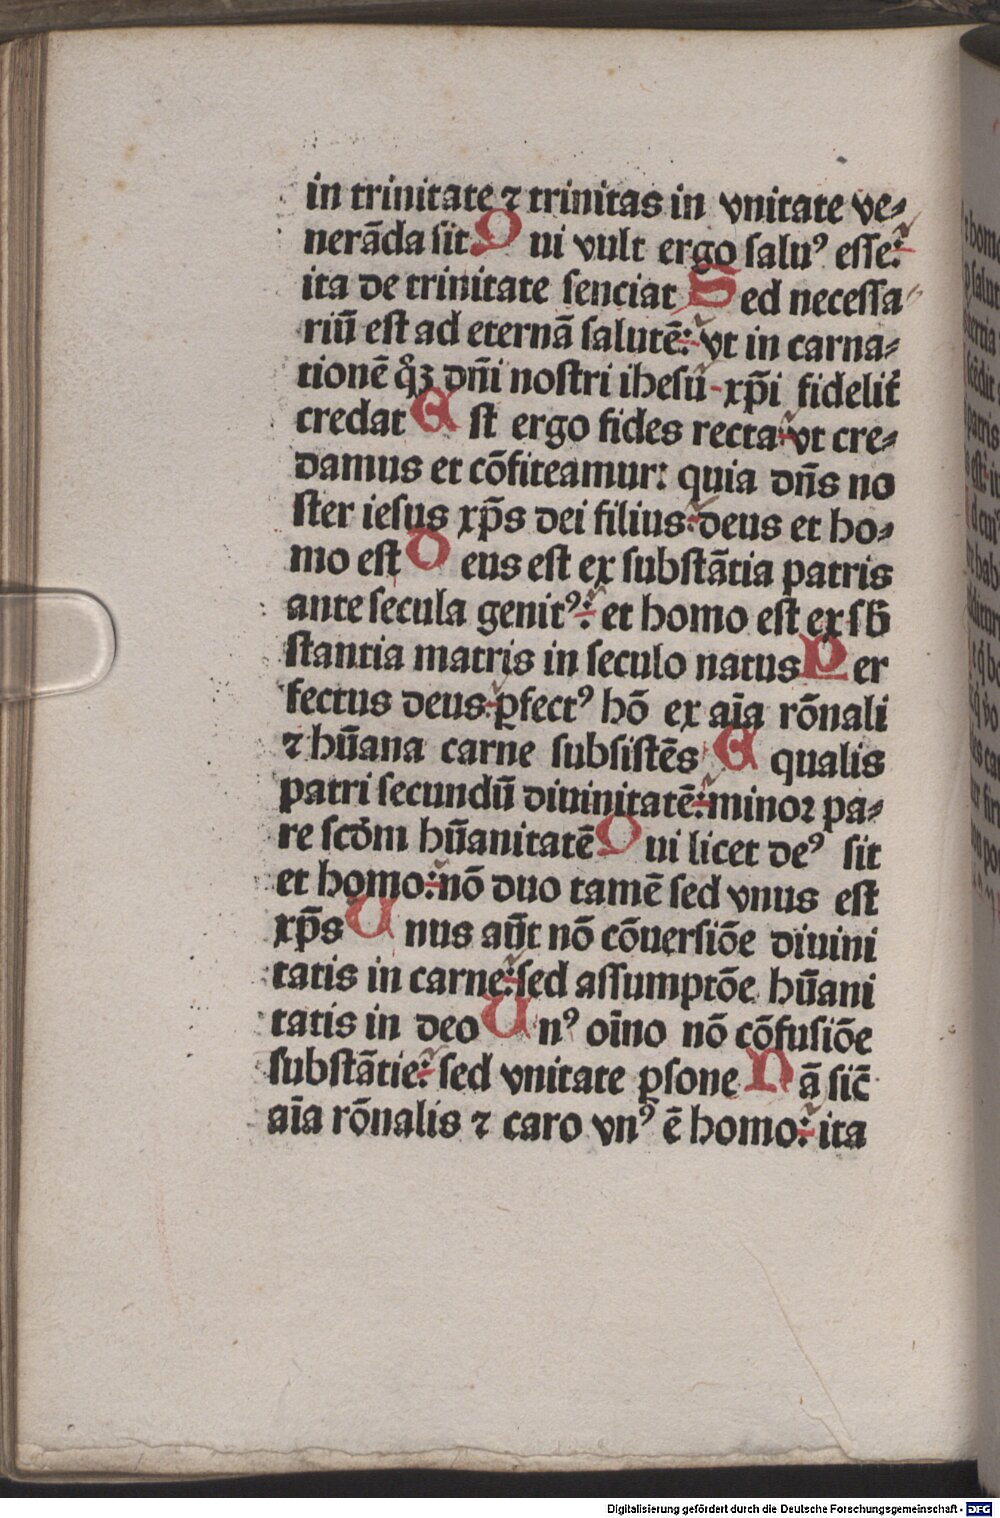 in trinitate ⁊ trinitas in vnitate ve⸗
nerãda sit Qui vult ergo saluꝰ esse:
ita de trinitate senciat Sed necessa
riũ est ad eternã salutẽ: vt in carna⸗
tionẽ qͦꝫ dñi nostri ihesu xp̃i fidelit̃
credat Est ergo fides recta: vt cre⸗
damus et cõfiteamur: quia dñs no
ster iesus xp̃s dei filius: deus et ho⸗
mo est Deus est ex substãtia patris
ante secula genitꝰ: et homo est ex sb̃
stantia matris in seculo natus Per
fectus deus ꝑfectꝰ hõ ex aĩa rõnali
⁊ hũana carne subsistẽs Equalis
patri secundũ diuinitatẽ: minor pa⸗
tre scd̾m hũanitatẽ Qui licet deꝰ sit
et homo: nõ duo tamẽ sed vnus est
xp̃s Unus aũt nõ cõuersiõe diuini
tatis in carne: sed assumptõe hũani
tatis in deo Unꝰ oĩno nõ cõfusiõe
substãtie: sed vnitate ꝑsone Nã sic̃
aĩa rõnalis ⁊ caro vnꝰ ẽ homo: ita
Digitalisierung gefördert durch die Deutsche Forschungsgemeinschaft - DFG